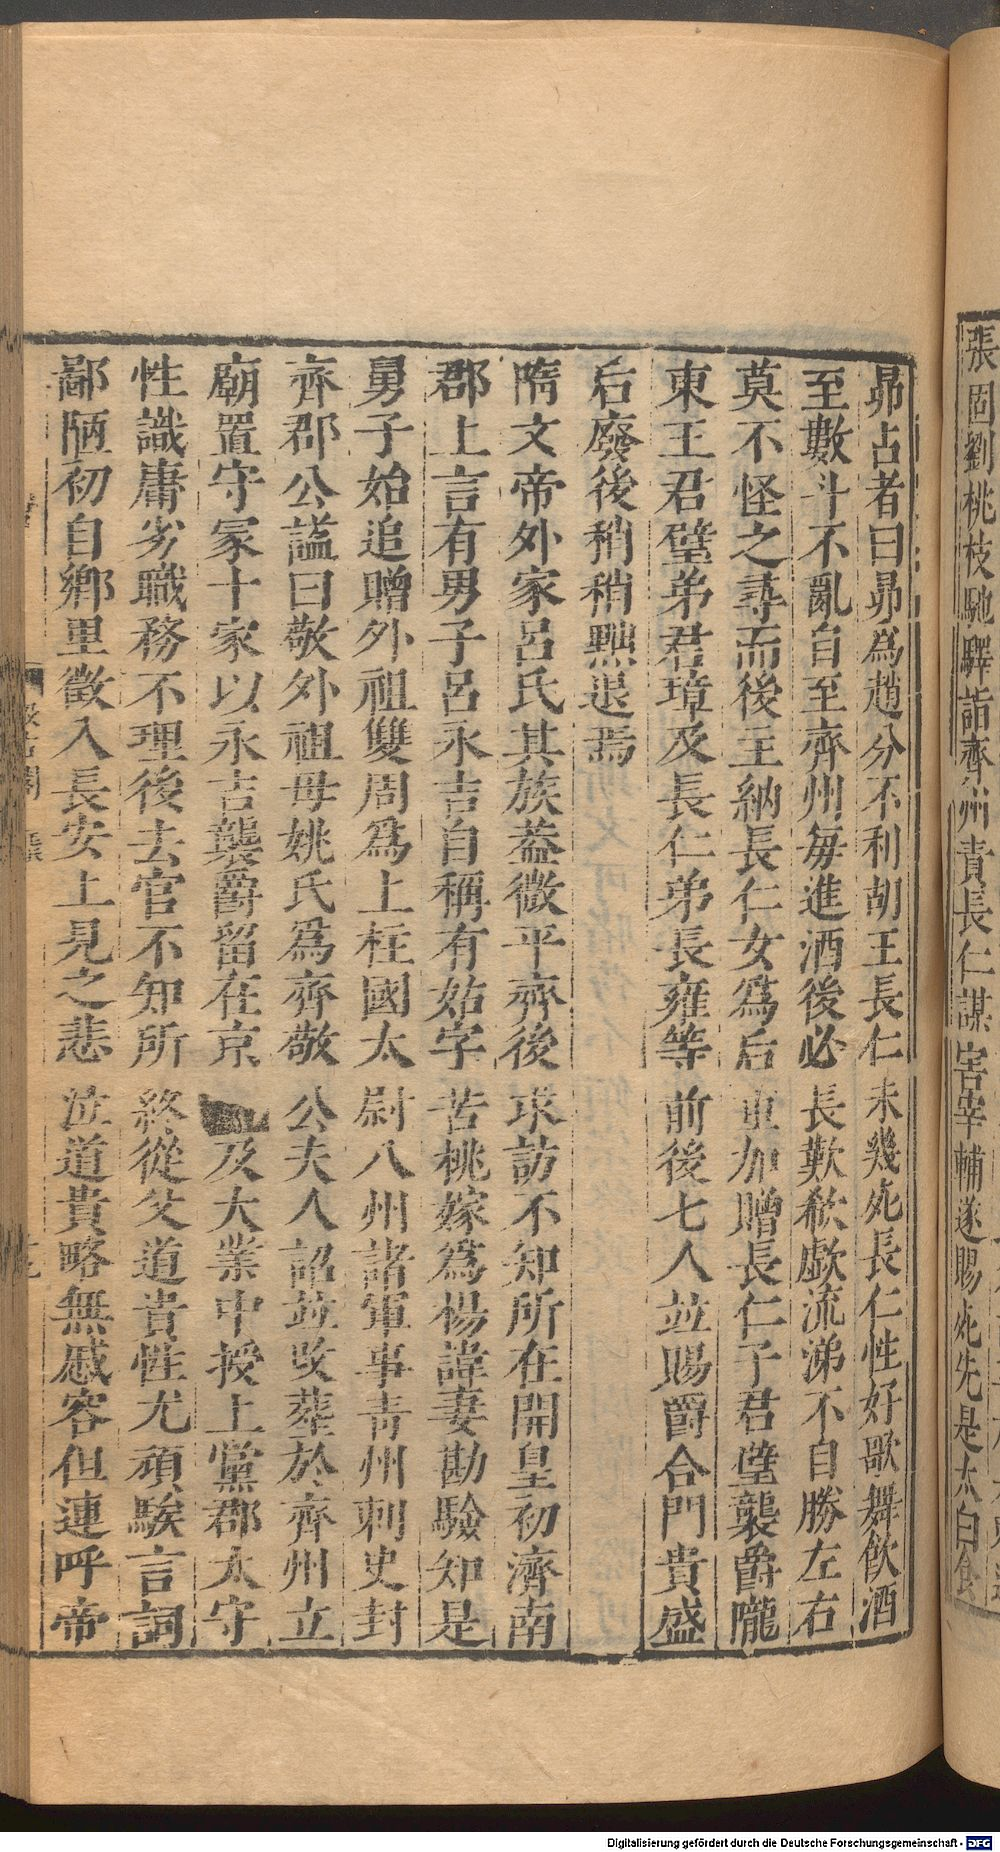 張固劉桃枝馳驛詣齊州責長仁謀害宰輔遂賜死先是太白食
昴占者曰昴為趙分不利胡王長仁未幾死長仁性好歌舞飲酒
至數斗不亂自至齊州每進酒後必長歎欷歔流涕不自勝左右
莫不怪之尋而後主納長仁女為后重加贈長仁子君璧襲爵隴
東王君璧弟君璋及長仁弟長雍等前後七人並賜爵合門貴盛
后廢後稍稍黜退焉
隋文帝外家呂氏其族葢微平齊後求訪不知所在開皇初濟南
郡上言有男子呂永吉自稱有姑字苦桃嫁為楊諱妻勘驗知是
舅子始追贈外祖雙周為上柱國太尉八州諸軍事青州刺史封
齊郡公謚曰敬外祖母姚氏為齊敬公夫人詔並改葬於齊州立
廟置守冢十家以永吉襲爵留在京及大業中授上黨郡太守
性識庸劣職務不理後去官不知所終從父道貴性尤頑騃言詞
鄙陋初自鄉里徵入長安上見之悲泣道貴略無慼容但連呼帝
Digitalisierung gefördert durch die Deutsche Forschungsgemeinschaft - DFG